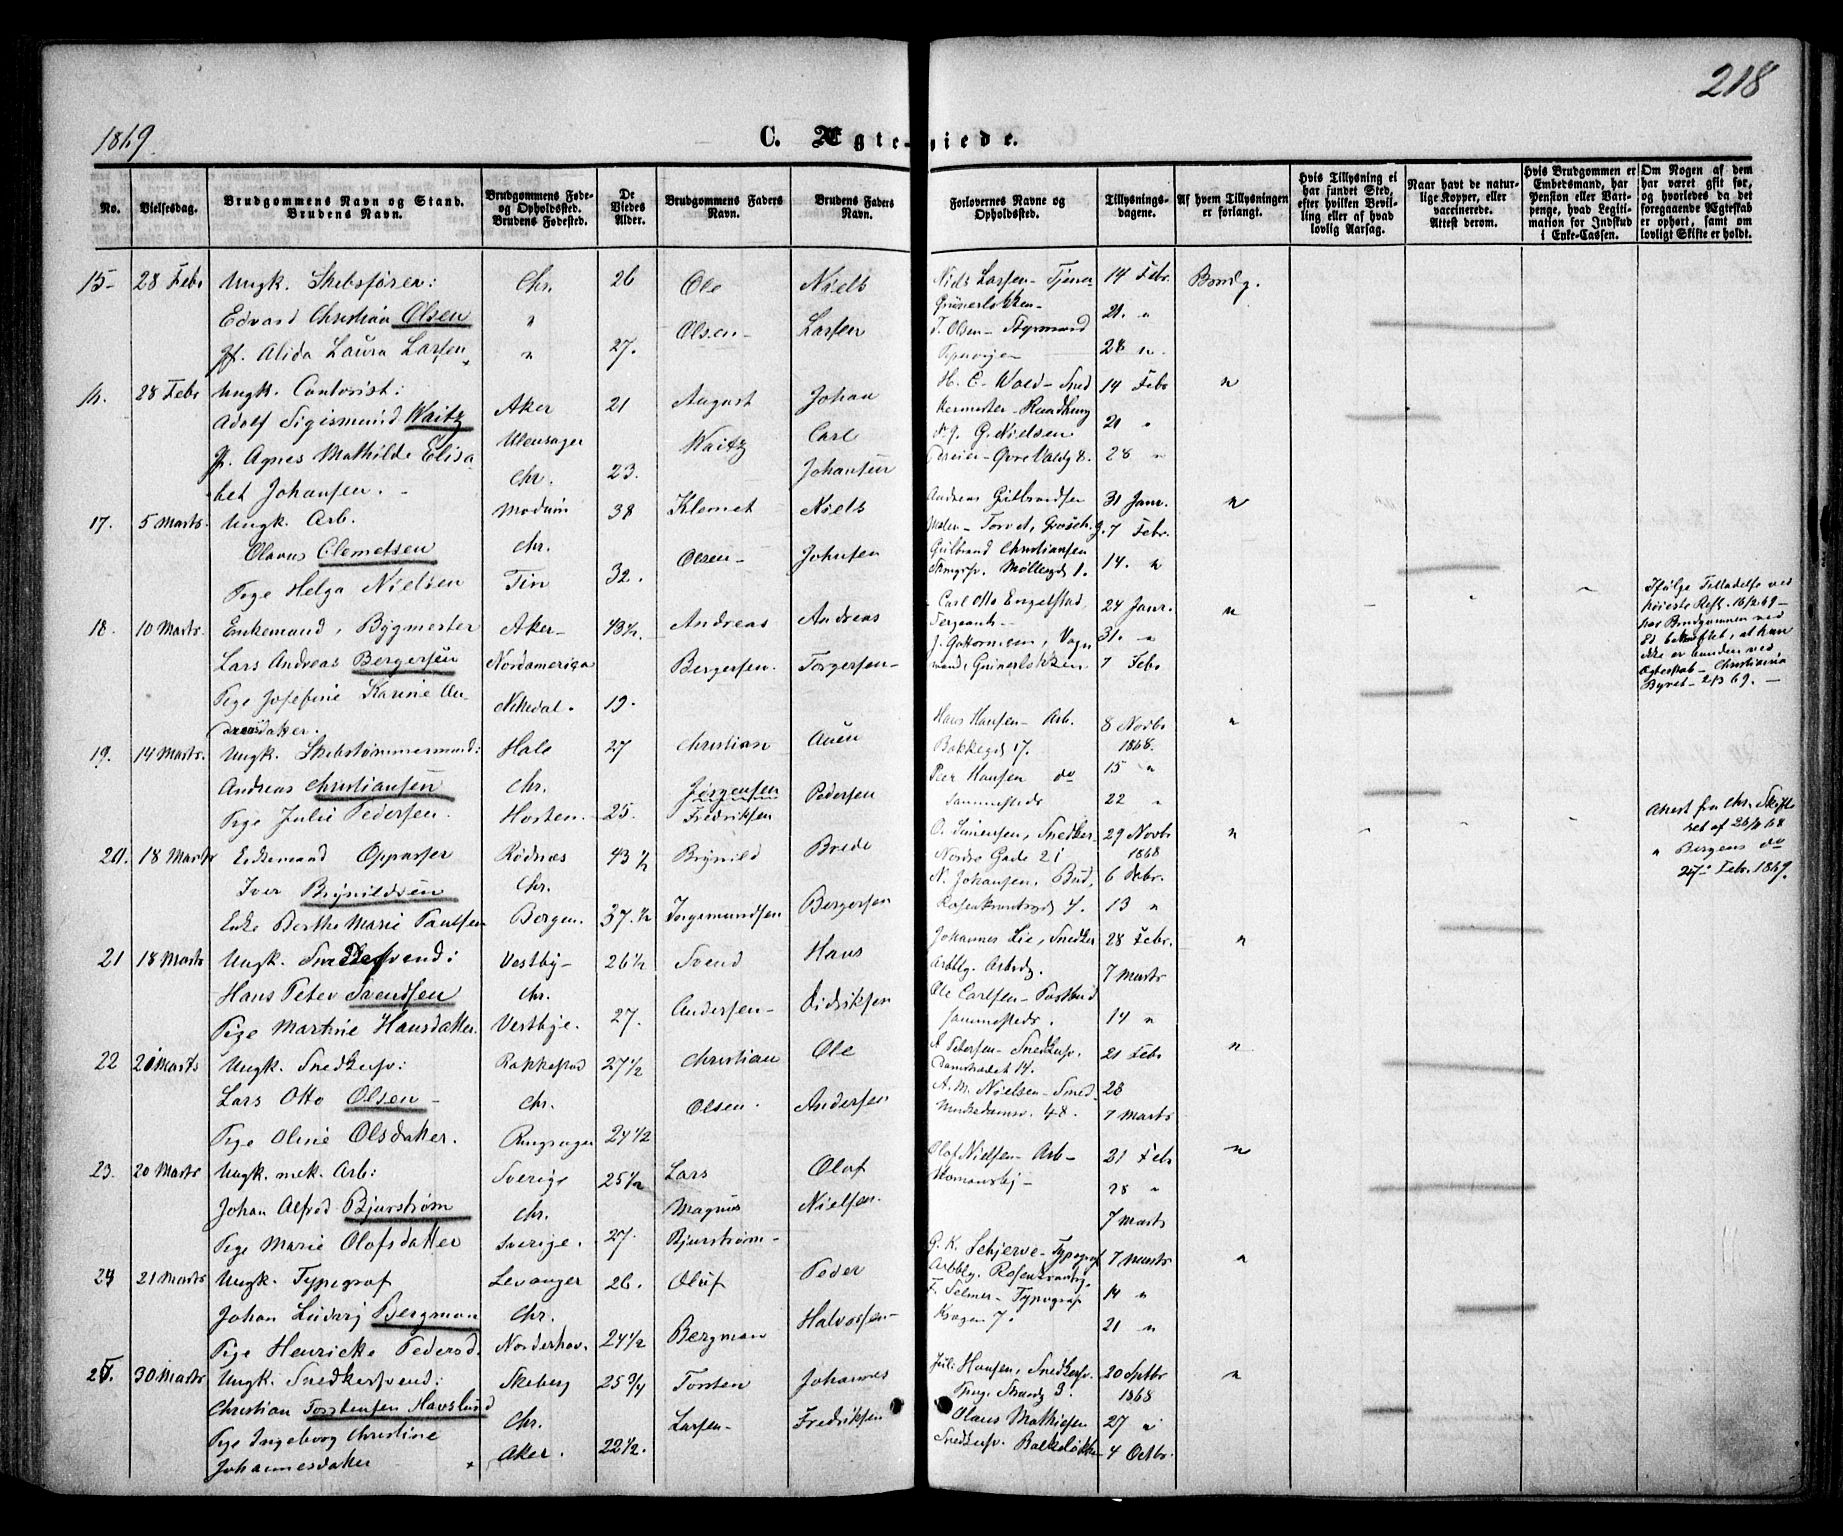 218
1869.
C. Ægteviede.
No.
Vielsesdag.
Brudgommens Navn og Stand.
Brudens Navn.
Brudgommens Føde-
og Opholdssted.
Brudens Fødested.
De
Viedes
Alder.
Brudgommens Faders
Navn.
Brudens Faders
Navn.
Forlovernes Navne og
Opholdssted.
Tillysnings-
dagene.
Af hvem Tillysningen
er forlangt.
Hvis Tillysning ei
har fundet Sted,
efter hvilken Bevil-
ling eller af hvad
lovlig Aarsag.
Naar havt de natur-
lige Kopper, eller
vaccinerede.
Attest derom.
Hvis Brudgommen er
Embedsmand, har
Pension eller Vart-
penge, hvad Legiti-
mation for Indskud
i Enke-Cassen.
Om Nogen af dem
har været gift før,
og hvorledes da det
foregaaende Ægteskab
er ophørt, samt om
lovligt Skifte er holdt.
15 28 Febr Ungk. Skibsfører: Chr. 26 Ole Niels Niels Larsen - Tjener 14 Febr. Brudg.
Edvard Christian Olsen " Olsen - Larsen Grünerløkken - 21. "
Pf. Alida Laura Larsen " 27. T. Olsen - Styrmand 28 "
16. 28 Febr Ungk. Contorist: Aker 21 August Johan H. C. Wold - Sned 14 Febr "
Adolf Sigismund Waitz Ullensager Waitz Carl 21 "
Pf. Agnes Mathilde Elisa- Chr. 23. Johansen G. Nielsen 28 "
bet Johansen.
17. 5 Marts. Ungk. Arb. Modum 38 Klemet Niels Andreas Gulbrandsen 31 Janr. "
Olavus Clemetsen Chr. Olsen - Johnsen 7 Febr.
Pige Helga Nielsen Tin 32. Gulbrand Christiansen 14. "
Møllegd 1.
18. 10 Marts. Enkemand, Bygmester Aker - 43½ Andreas Andreas Carl Otto Engelstad, 24 Janr. "
Lars Andreas Bergersen Nordamerica Bergersen. Torgersen - Sergeant - 31. "
Pige Josefine Karine An- Nitedal. 19. Grünerløkken 7 Febr
dreasdatter.
Ifølge Tilladelse ved
høieste Resl. 16/2 69 -
har Brudgommen ved
Ed bekræftet, at han
ikke er bunden ved
Ægteskab - Christiania
Byret - 2/3 69. -
19. 14 Marts. Ungk. Skibstømmermand: Hole 27 Christian Hans Hansen - Arb. 8 Novbr "
Andreas Christiansen Chr. Jørgensen Pedersen Bakkegd 17. 1868.
Pige Julie Pedersen. 25. Fredriksen Peer Hansen do 15 "
sammesteds 22 "
20. 18 Marts Enkemand Oppasser Rødnæs 43½ Brynild Brede Snedker 29 Novbr "
Iver Brynildsen Chr. Nordre Gade 21 1868
Enke Berthe Marie Paulsen Bergen. 37.½ Ingemundsen Bergersen N. Johansen, Bud, 6 Decbr.
Rosenkrantzgd 4. 13 "
Attest fra Chr. Skifte
ret af 68
" Bergens do
27. Febr. 1869.
21 18 Marts Ungk. Snedkersvend: Vestby - 26½ Svend Hans Johannes Lie, Snedker 28 Febr. "
Hans Peter Svendsen Chr. Andersen - Didriksen 7 Marts
Pige Martine Hansdatter. Vestbye. 27. Ole Carlsen - Postbud
sammesteds. 14 "
22 20 Marts Ungk. Snedkersv: Rakkestad 27½ Christian Ole A Petersen - Snedkersv. 21 Febr "
Lars Otto Olsen - Chr. Olsen. Andersen Damstrædet 14.
Pige Oline Olsdatter. Ringsager 24½ A. M. Nielsen - Smed. 28
Munkedamsv. 48. 7 Marts
23. 20 Marts Ungk. mek. Arb: Sverige 25½ Lars Olof Olof Nielsen - Arb - 21 Febr "
Johan Alfred Bjurstrøm Chr. Magnus Nielsen. Homansby - 28 "
Pige Marie Olofsdatter Sverige. 27. Bjurstrøm - 7 Marts
24 21 Marts Ungk. Typograf Levanger 26. Oluf Peder G. K. Schjerve - Typograf 7 Marts "
Johan Ludvig Bergman Chr. Bergman Halvorsen - F. Selmer - Typograf 14 "
Pige Henricke Pedersd. Norderhov. 24½ Krogen 7. 21 "
25. 30 Marts Ungk. Snedkersvend: Skeberg 25¾ Torsten Johannes Juli. Hansen, Snedkersv. 20 Septbr "
Christian Torstensen Havslund Chr. Larsen - Fredriksen 1868
Pige Ingeborg Christine Aker. 22½. Olaus Mathiesen 27 "
Johannesdatter Snedkersv. Balkeløkken 4 Octbr.